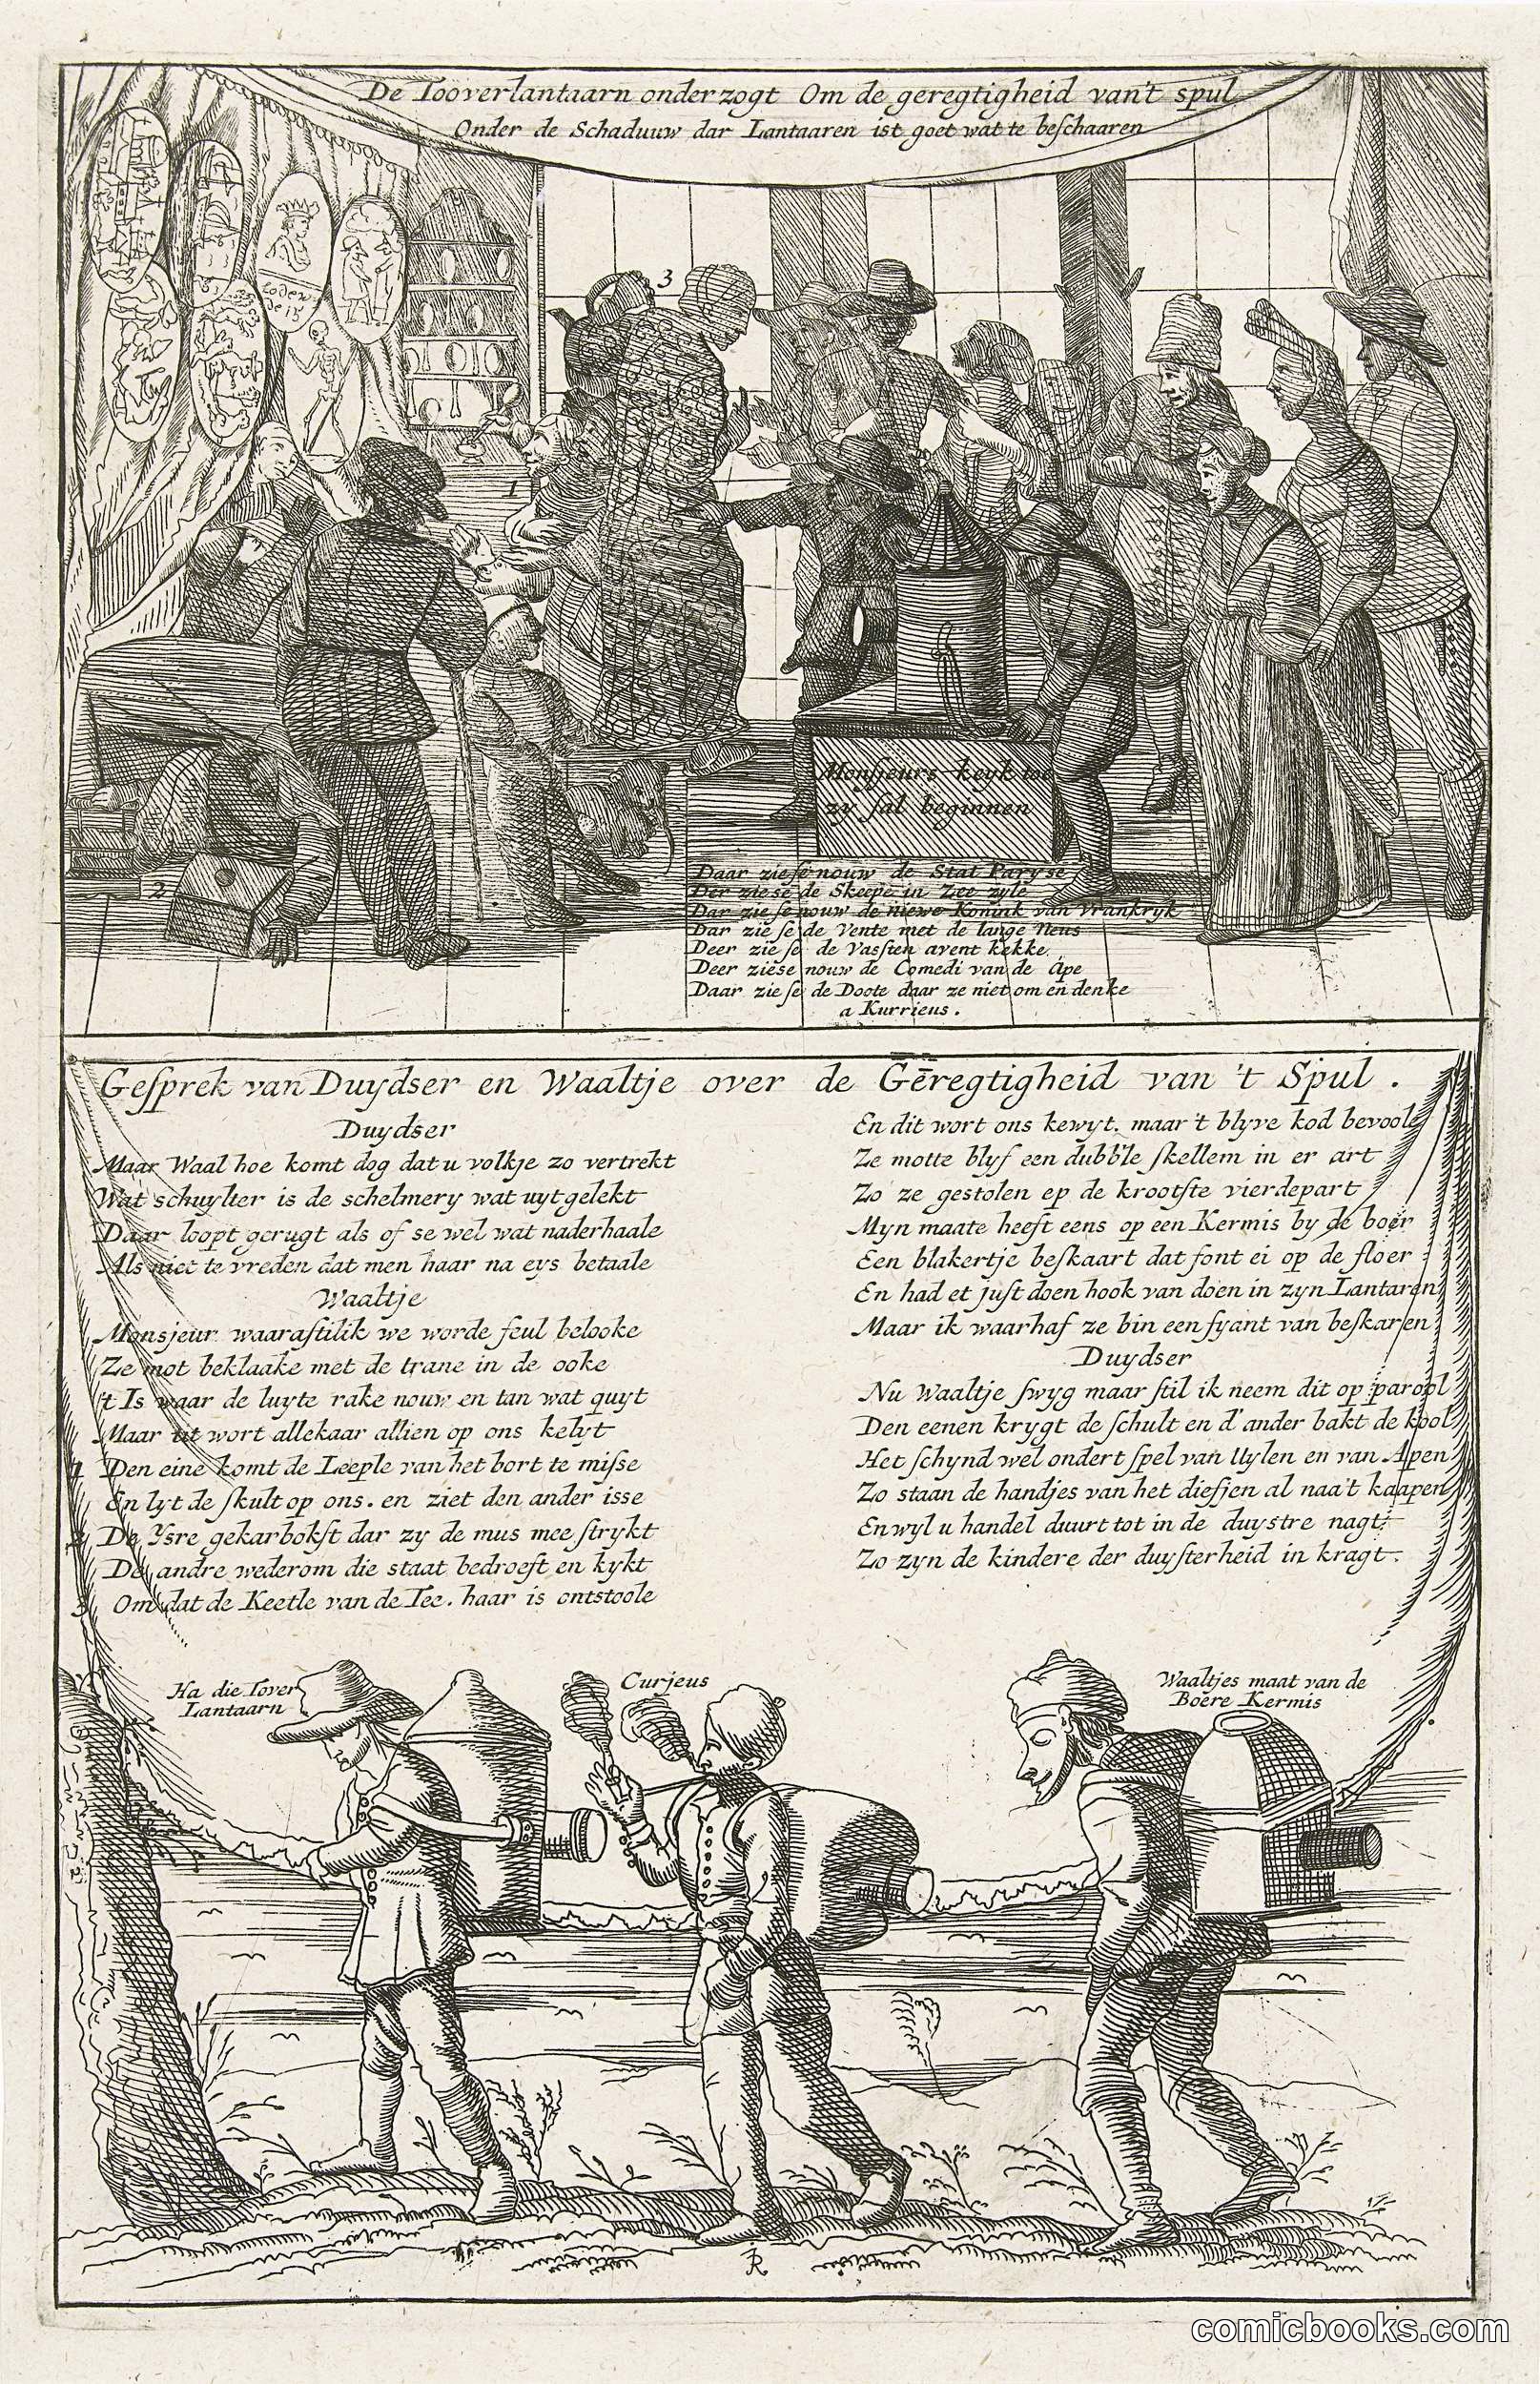 De Tooverlantaarn onderzogt Om de geregtigheid van't spul
Onder de Schaduuw dar Lantaaren ist goet wat te beschaaren
zoden
de 15
3
1
2
Monsjeurs keyk toe
zy sal beginnen
Daar ziese nouw de Stat Paryse
Der ziese de Skeepe in Zee zyle
Dar zie se nouw de niewe Konink van Vrankryk
Dar zie se de Vente met de lange Neus
Deer zie se de Vassten avent kekke
Deer ziese nouw de Comedi van de Ape
Daar zie se de Doote daar ze niet om en denke
a Kurrieus.
Gesprek van Duydser en Waaltje over de Geregtigheid van 't Spul.
Duydser
Maar Waal hoe komt dog dat u volkje zo vertrekt
Wat schuylter is de schelmery wat uytgelekt
Daar loopt gerugt als of se wel wat naderhaale
Als niet te vreden dat men haar na eys betaale
Waaltje
Monsjeur waarastilik we worde feul belooke
Ze mot beklaake met de trane in de ooke
't Is waar de luyte rake nouw en tan wat quyt
Maar tit wort allekaar allien op ons kelyt
1 Den eine komt de Leeple van het bort te misse
En lyt de skult op ons. en ziet den ander isse
2 De Ysre gekarbokst dar zy de mus mee strykt
De andre wederom die staat bedroeft en kykt
3 Om dat de Keetle van de Tee. haar is ontstoole
En dit wort ons kewyt. maar 't blyve kod bevoole
Ze motte blyf een dubb'le skellem in er art
Zo ze gestolen ep de krootste vierdepart
Myn maate heeft eens op een Kermis by de boer
Een blakertje beskaart dat font ei op de floer
En had et just doen hook van doen in zyn Lantaren
Maar ik waarhaf ze bin een fyant van beskaren
Duydser
Nu Waaltje swyg maar stil ik neem dit op parool
Den eenen krygt de schult en d' ander bakt de kool
Het schynd wel ondert spel van Uylen en van Apen
Zo staan de handjes van het diefjen al naa't kaapen
En wyl u handel duurt tot in de duystre nagt
Zo zyn de kindere der duysterheid in kragt.
Ha die Tover
Lantaarn
Curjeus
Waaltjes maat van de
Boere Kermis
comicbooks.com